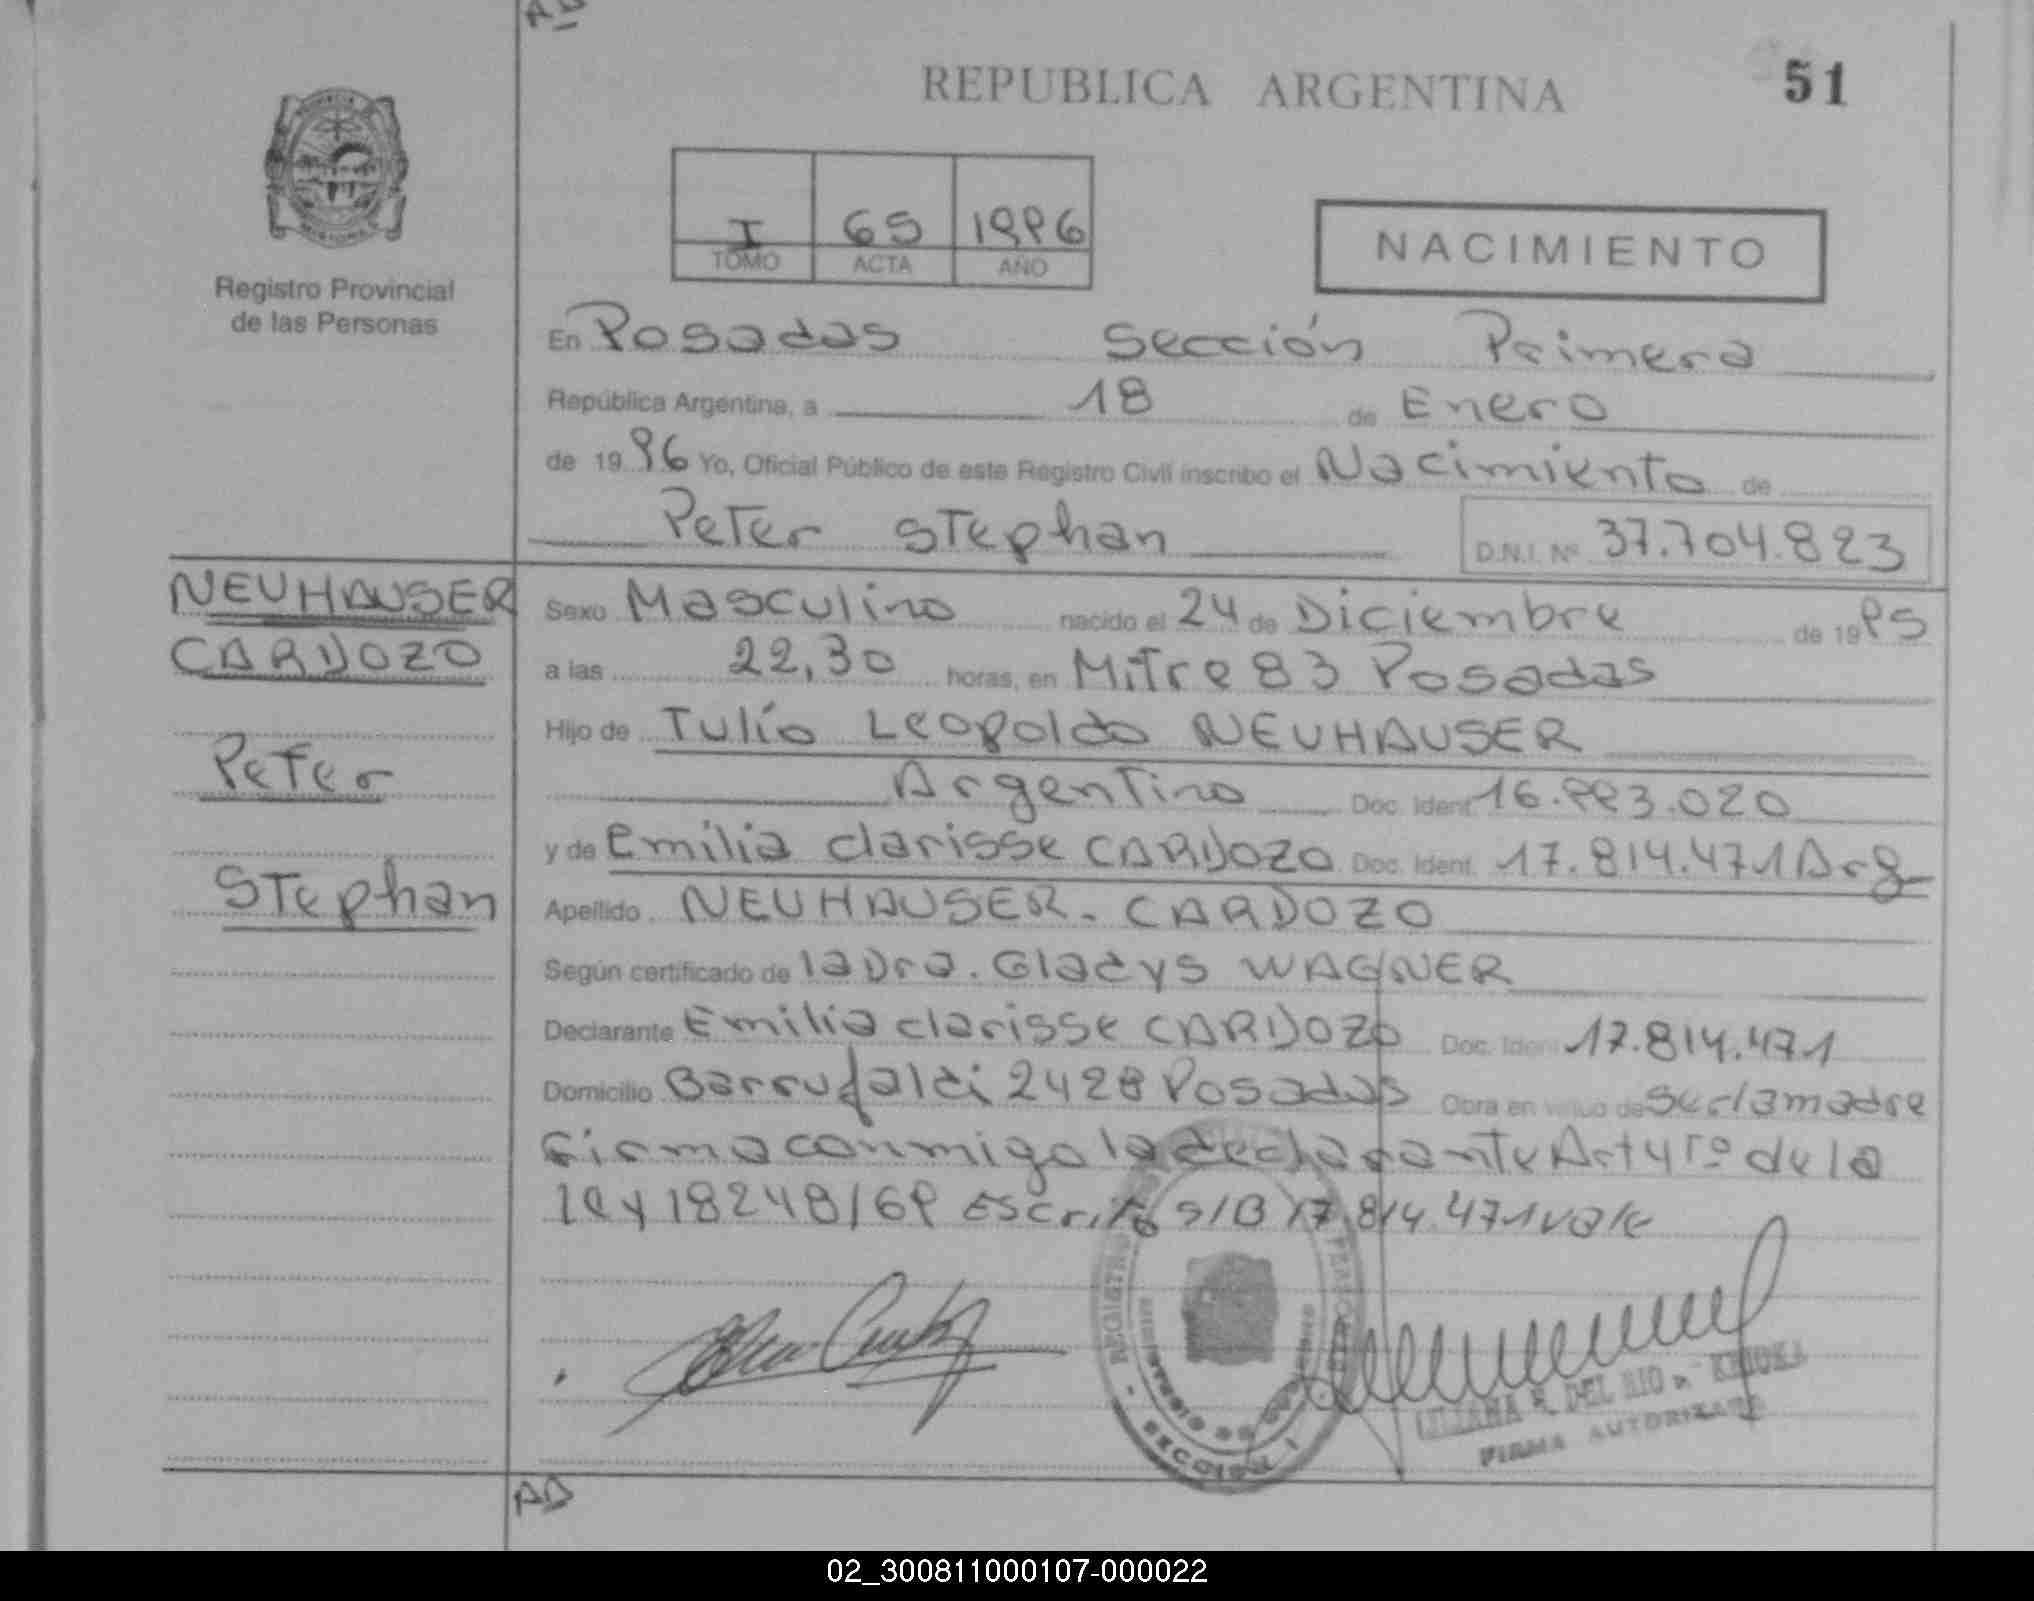 AD
REPUBLICA ARGENTINA
51
MISIONES
Registro Provincial
de las Personas
I 65 1996
TOMO ACTA AÑO
NACIMIENTO
En Posadas Sección Primera
República Argentina, a 18 de Enero
de 19 96 Yo, Oficial Público de este Registro Civil inscribo el Nacimiento de
Peter Stephan D.N.I. Nº 37.704.823
NEUHAUSER
CARDOZO
Peter
Stephan
Sexo Masculino nacido el 24 de Diciembre de 19 95
a las 22,30 horas, en Mitre 83 Posadas
Hijo de Tulío Leopoldo NEUHAUSER
Argentino Doc. Ident. 16.993.020
y de Emilia Clarisse CARDOZO Doc. Ident. 17.814.471 Arg
Apellido NEUHAUSER - CARDOZO
Según certificado de la Dra. Gladys WAGNER
Declarante Emilia Clarisse CARDOZO Doc. Ident 17.814.471
Domicilio Barrufaldi 2428 Posadas Obra en virtud de Ser la madre
Firma conmigo la declarante Art 4 1º de la
ley 18248/69 Escrito s/B 17.814.471 vale
REGISTRO
SECCION I
LILIANA R. DEL RIO
FIRMA AUTORIZADA
AD
02_300811000107-000022